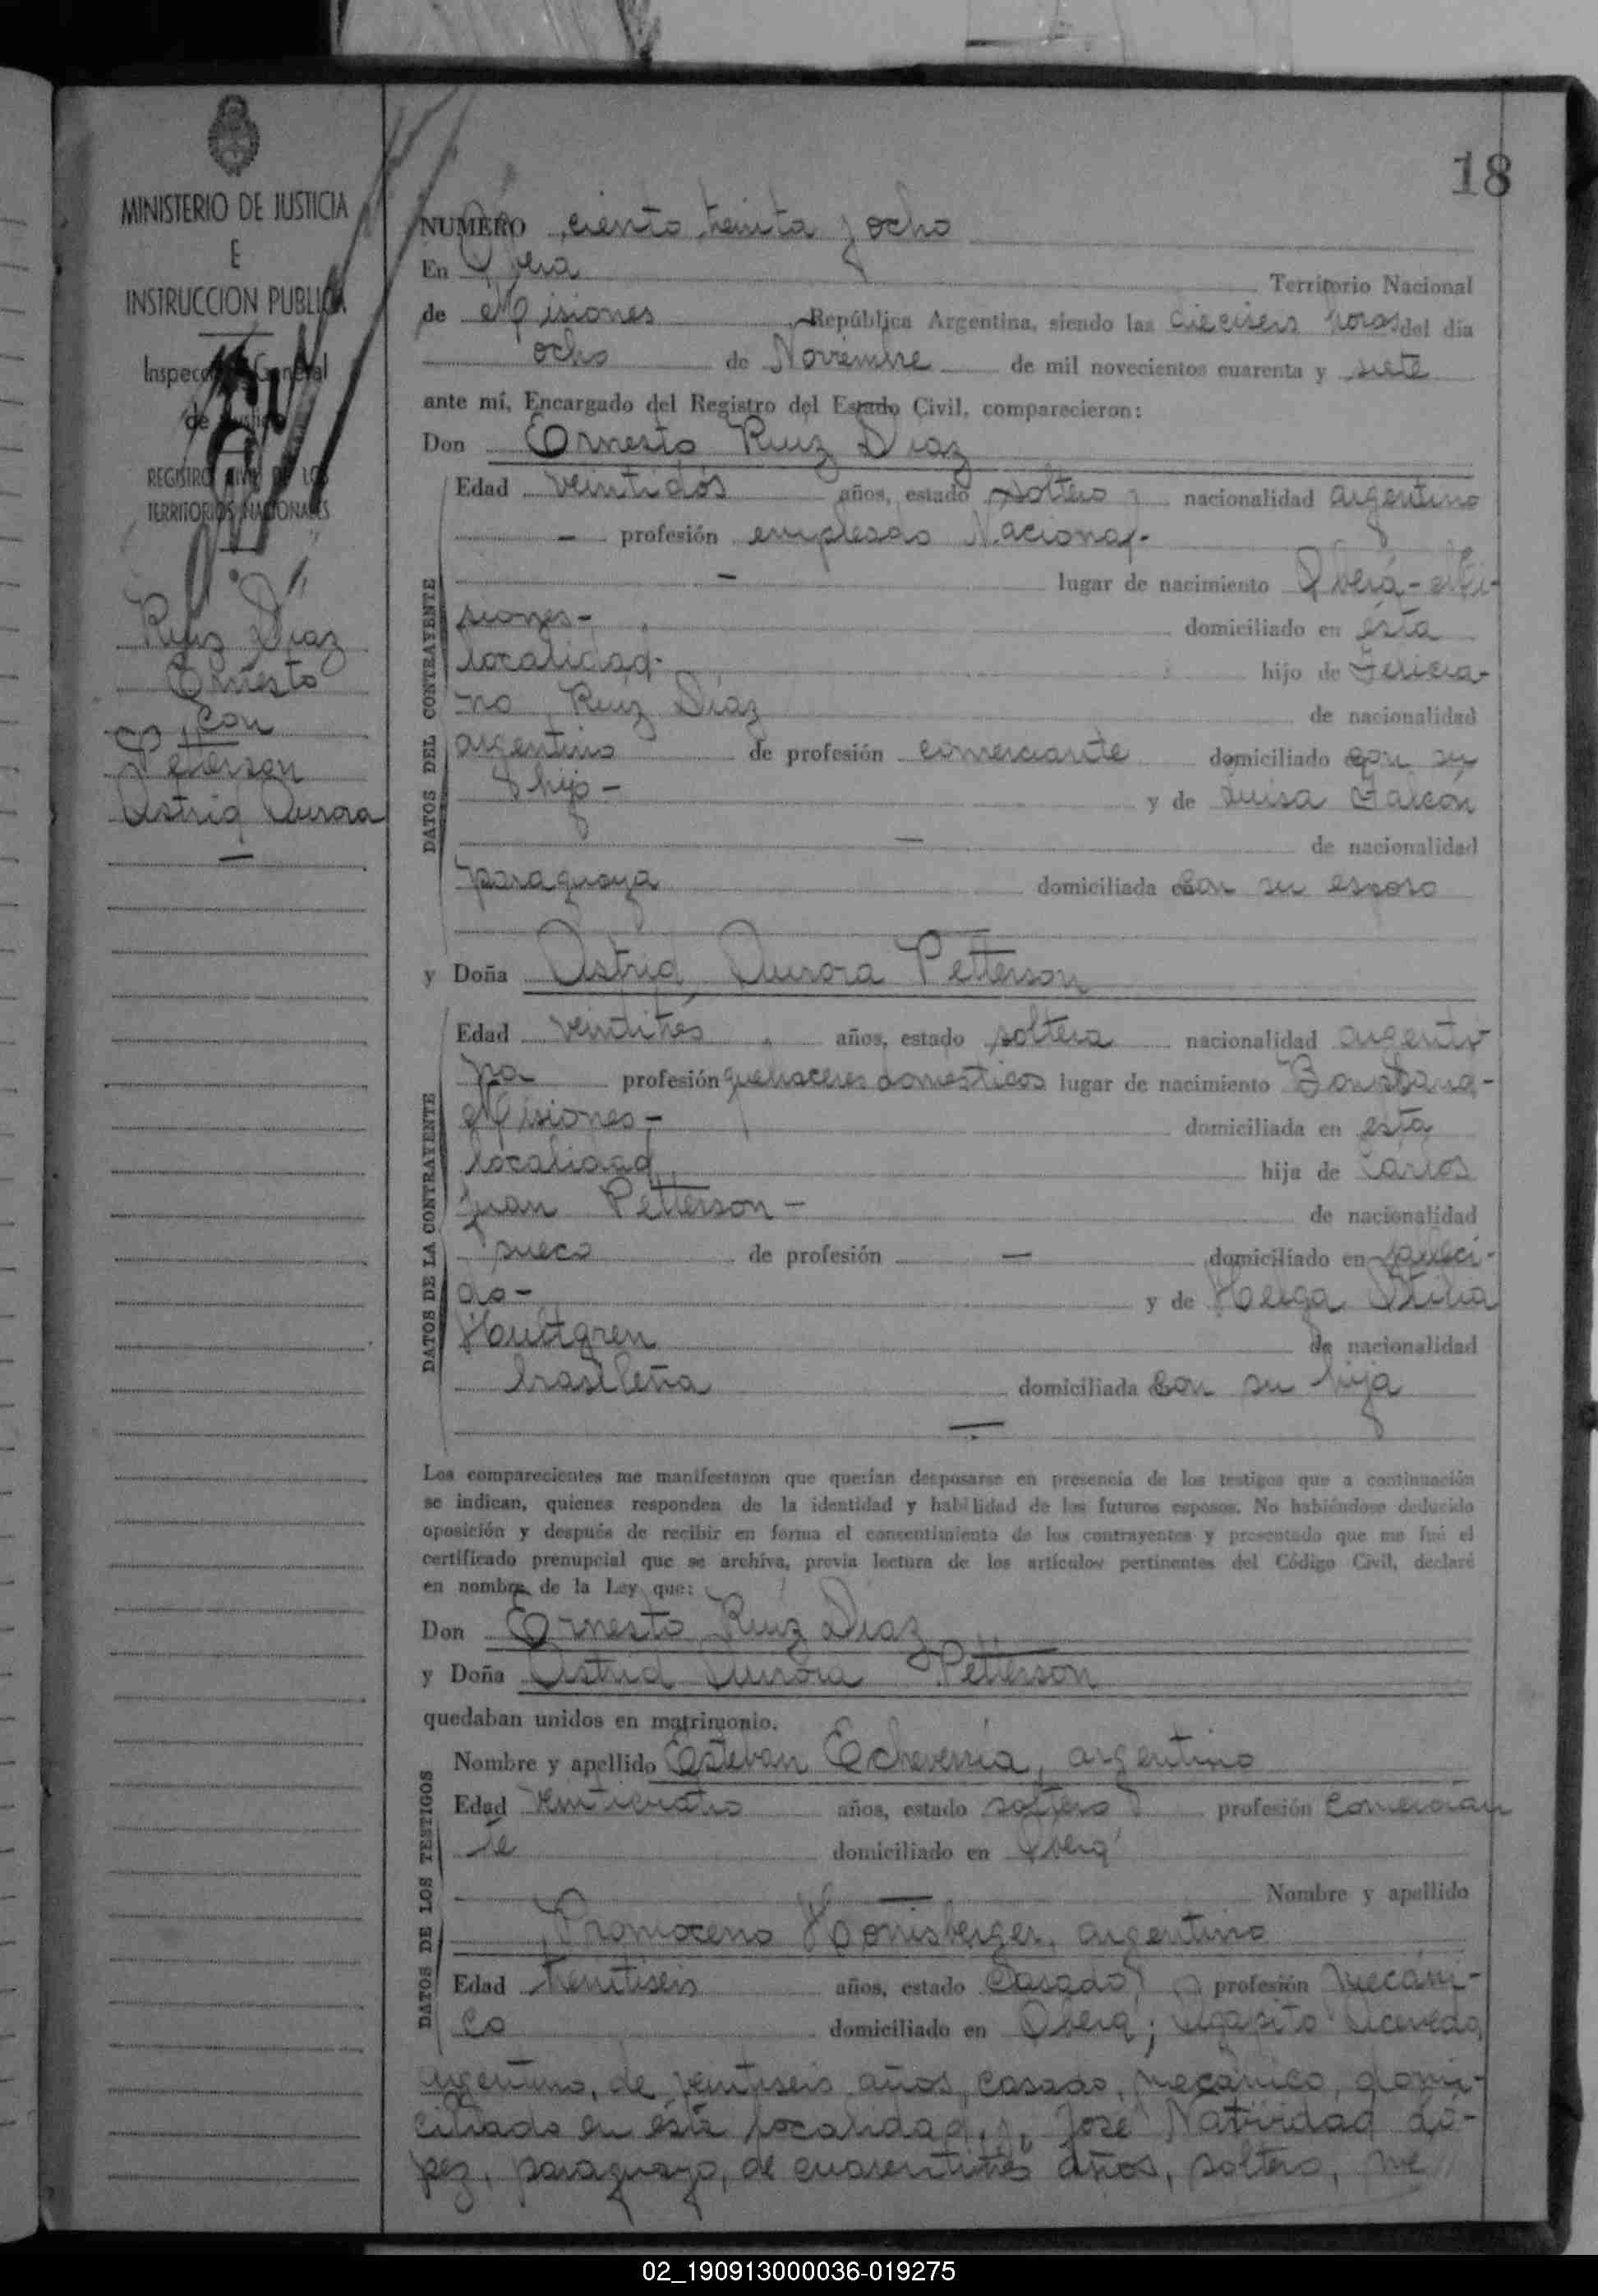 18
MINISTERIO DE JUSTICIA
E
INSTRUCCION PUBLICA
Inspección General
de Justicia
REGISTRO CIVIL DE LOS
TERRITORIOS NACIONALES
Ruiz Díaz
Ernesto
con
Petterson
Astrid Aurora
NUMERO ciento treinta y ocho
En Oberá Territorio Nacional
de Misiones República Argentina, siendo las dieciseis horas del día
ocho de Noviembre de mil novecientos cuarenta y siete
ante mí, Encargado del Registro del Estado Civil, comparecieron:
Don Ernesto Ruiz Díaz
DATOS DEL CONTRAYENTE
Edad veintidós años, estado soltero nacionalidad argentino
— profesión empleado Nacional-
— lugar de nacimiento Oberá - Mi-
siones- domiciliado en ésta
localidad- hijo de Felicia-
no Ruiz Díaz de nacionalidad
argentino de profesión comerciante domiciliado con su
hijo - y de Luisa Falcón
— de nacionalidad
paraguaya domiciliada con su esposo
y Doña Astrid Aurora Petterson
DATOS DE LA CONTRAYENTE
Edad veintitres años, estado soltera nacionalidad argenti-
na profesión quehaceres domesticos lugar de nacimiento Bonpland-
Misiones- domiciliada en esta
localidad hija de Carlos
Juan Petterson - de nacionalidad
sueco de profesión — domiciliado en falleci-
do - y de Helga Otilia
Hultgren de nacionalidad
brasileña domiciliada con su hija
—
Los comparecientes me manifestaron que querían desposarse en presencia de los testigos que a continuación
se indican, quienes responden de la identidad y habilidad de los futuros esposos. No habiéndose deducido
oposición y después de recibir en forma el consentimiento de los contrayentes y presentado que me fué el
certificado prenupcial que se archiva, previa lectura de los artículos pertinentes del Código Civil, declaré
en nombre de la Ley que:
Don Ernesto Ruiz Díaz
y Doña Astrid Aurora Petterson
quedaban unidos en matrimonio.
DATOS DE LOS TESTIGOS
Nombre y apellido Esteban Echeverría, argentino
Edad veinticuatro años, estado soltero profesión comercian
te domiciliado en Oberá
— Nombre y apellido
Honisberger, argentino
Edad treintiseis años, estado casado profesión mecáni-
co domiciliado en Oberá; Agapito Acevedo,
argentino, de años, casado, mecánico, domi-
ciliado en ésta localidad, y, José Natividad Ló-
pez, paraguayo, de cuarentitres años, soltero, me
02_190913000036-019275